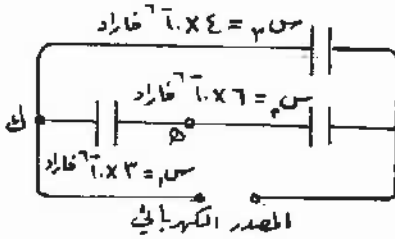 س٣ = ٤ × ١٠⁻⁶ فاراد
س٢ = ٦ × ١٠⁻⁶ فاراد
ك
هـ
س١ = ٣ × ١٠⁻⁶ فاراد
المصدر الكهربائي